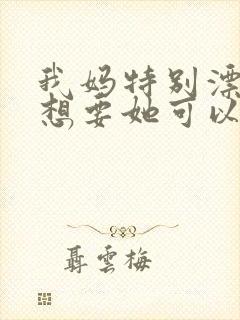 我妈特别漂
想要她可以
聂云梅